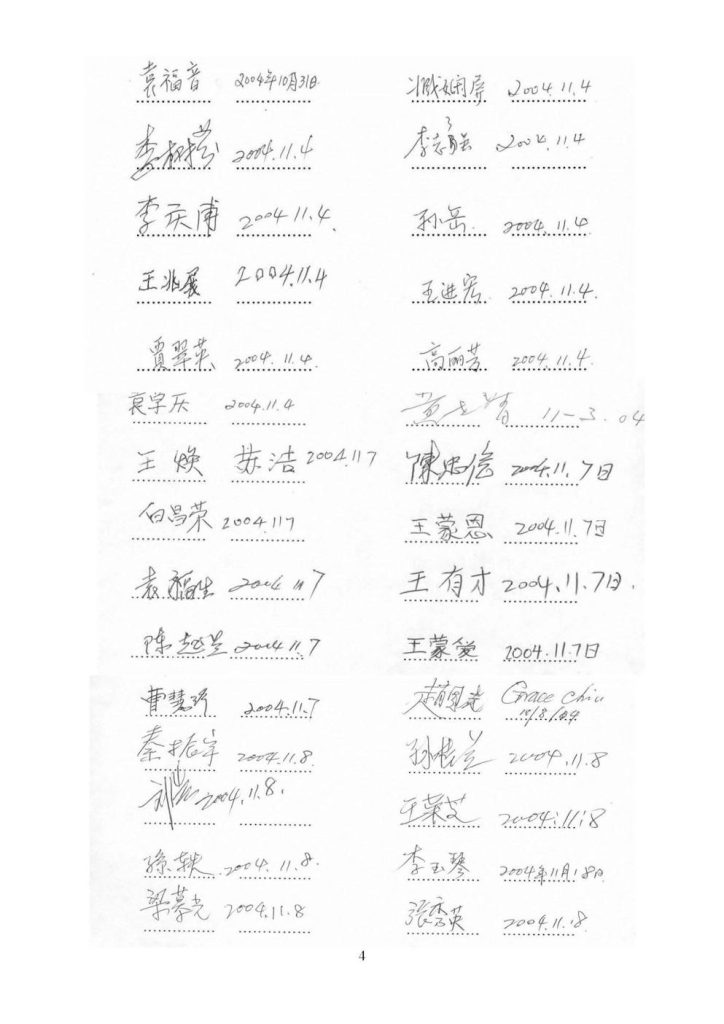 袁福音 2004年10月31日 2004.11.4
2004.11.4 李志强 2004.11.4
李庆甫 2004.11.4. 孙岳 2004.11.4
王兆展 2004.11.4 王进宏 2004.11.4.
贾翠英 2004.11.4. 高丽芳 2004.11.4.
袁学庆 2004.11.4 11-3.04
王焕 苏浩 2004.11.7 陳忠信 2004.11.7日
白昌荣 2004.11.7 王蒙恩 2004.11.7日
袁福生 2004.11.7 王有才 2004.11.7日.
陈越 2004.11.7 王蒙爱 2004.11.7日
曹慧玲 2004.11.7 Grace Chiu
秦振宇 2004.11.8. 孙桂兰 2004.11.8
刘 2004.11.8. 王荣芝 2004.11.8
孫軼 2004.11.8. 李玉琴 2004年11月8日
梁慕光 2004.11.8 張秀英 2004.11.8
4